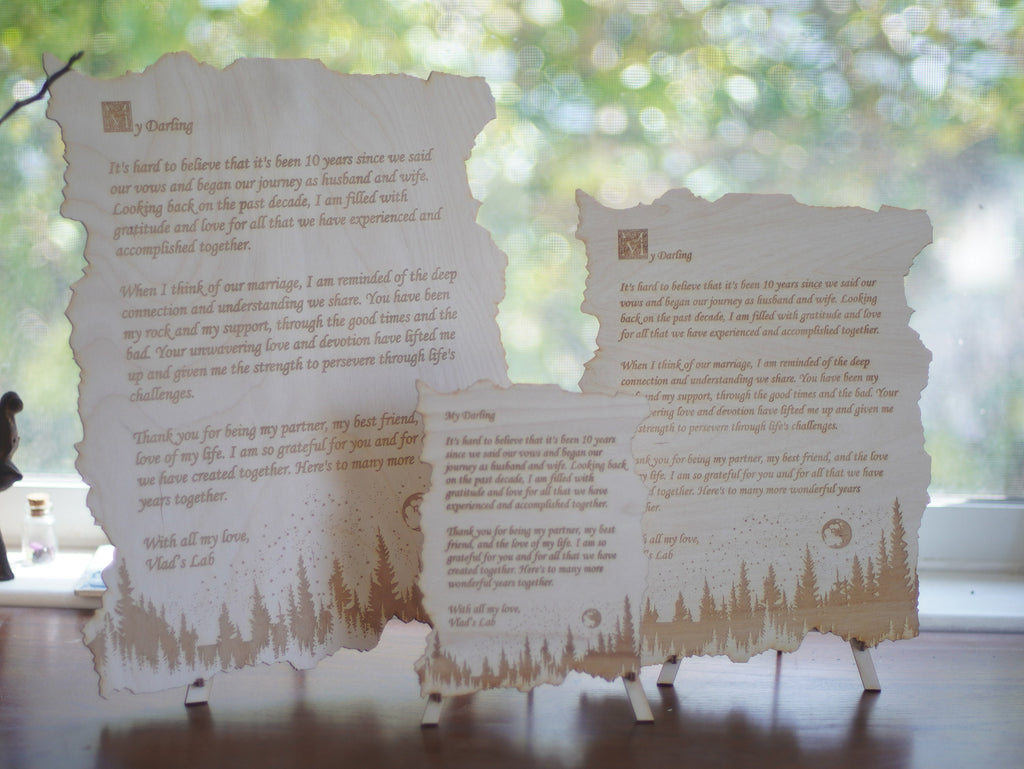 My Darling
It's hard to believe that it's been 10 years since we said
our vows and began our journey as husband and wife.
Looking back on the past decade, I am filled with
gratitude and love for all that we have experienced and
accomplished together.
When I think of our marriage, I am reminded of the deep
connection and understanding we share. You have been
my rock and my support, through the good times and the
bad. Your unwavering love and devotion have lifted me
up and given me the strength to persevere through life's
challenges.
Thank you for being my partner, my best friend,
love of my life. I am so grateful for you and for
we have created together. Here's to many more
years together.
With all my love,
Vlad's Lab
My Darling
It's hard to believe that it's been 10 years
since we said our vows and began our
journey as husband and wife. Looking back
on the past decade, I am filled with
gratitude and love for all that we have
experienced and accomplished together.
Thank you for being my partner, my best
friend, and the love of my life. I am so
grateful for you and for all that we have
created together. Here's to many more
wonderful years together.
With all my love,
Vlad's Lab
My Darling
It's hard to believe that it's been 10 years since we said our
vows and began our journey as husband and wife. Looking
back on the past decade, I am filled with gratitude and love
for all that we have experienced and accomplished together.
When I think of our marriage, I am reminded of the deep
connection and understanding we share. You have been my
and my support, through the good times and the bad. Your
ering love and devotion have lifted me up and given me
strength to persevere through life's challenges.
nk you for being my partner, my best friend, and the love
y life. I am so grateful for you and for all that we have
d together. Here's to many more wonderful years
her.
all my love,
's Lab